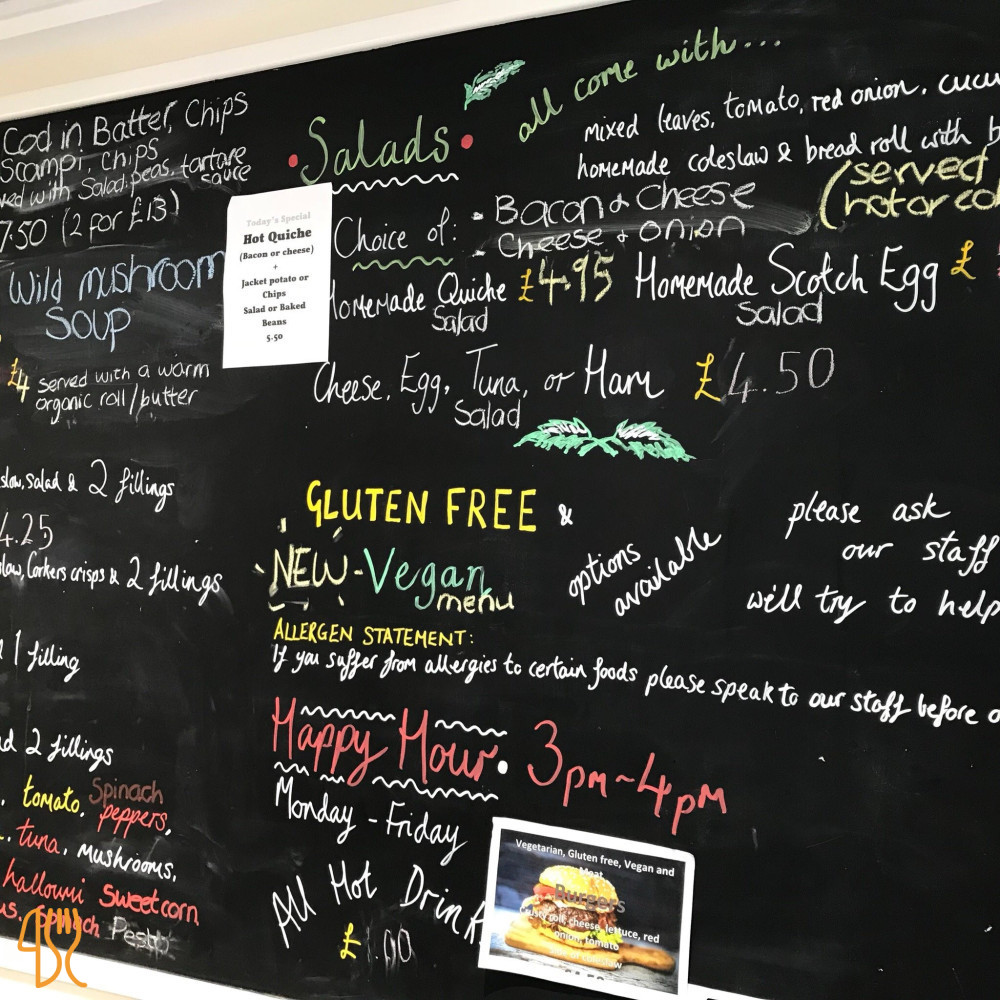 Cod in Batter, Chips
Scampi, chips
ved with Salad, peas, tartare
sauce
7.50 (2 for £13)
Wild mushroom
Soup
£4 served with a warm
organic roll/butter
slaw, salad & 2 fillings
4.25
slaw, Corkers crisps & 2 fillings
1 filling
2 fillings
tomato, Spinach
peppers,
tuna, mushrooms,
halloumi Sweetcorn
Spinach Pesto
Today's Special
Hot Quiche
(Bacon or cheese)
+
Jacket potato or
Chips
Salad or Baked
Beans
5.50
Salads
all come with...
mixed leaves, tomato, red onion, cucu
homemade coleslaw & bread roll with b
(served
hot or col
Choice of: - Bacon & Cheese
- Cheese + onion
Homemade Quiche £4.95 Homemade Scotch Egg £
Salad Salad
Cheese, Egg, Tuna, or Ham £4.50
Salad
GLUTEN FREE &
NEW - Vegan
menu
options
available
please ask
our staff
will try to help
ALLERGEN STATEMENT:
If you suffer from allergies to certain foods please speak to our staff before o
Happy Hour. 3pm~4pm
Monday - Friday
All Hot Drink
£1.00
Vegetarian, Gluten free, Vegan and
Meat
Burgers
Crusty roll, cheese, lettuce, red
onion, tomato
coleslaw